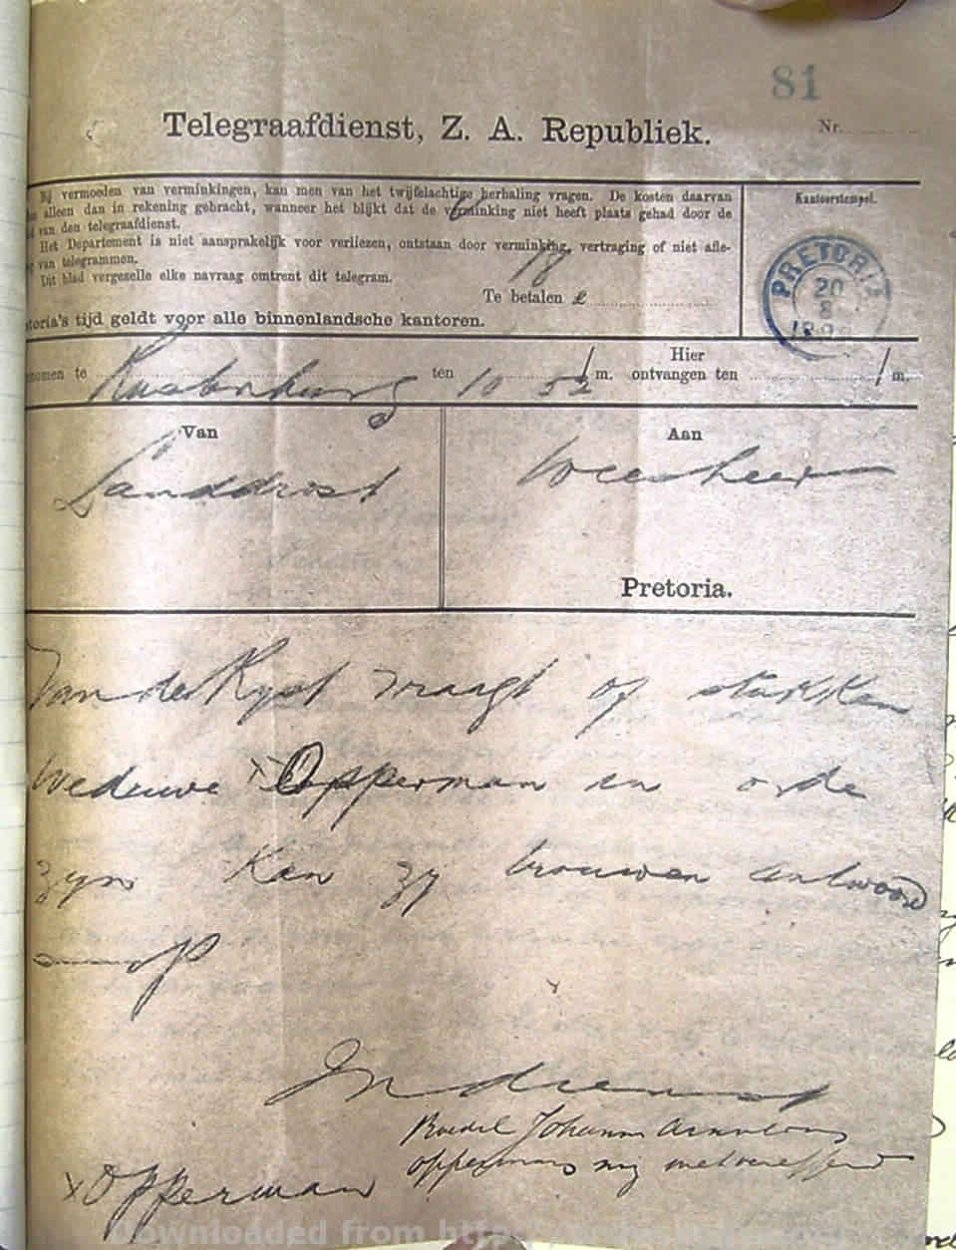 81
Telegraafdienst, Z. A. Republiek.
Nr.
Bij vermoeden van verminkingen, kan men van het twijfelachtige herhaling vragen. De kosten daarvan
alleen dan in rekening gebracht, wanneer het blijkt dat de verminking niet heeft plaats gehad door de
van den telegraafdienst.
Het Departement is niet aansprakelijk voor verliezen, ontstaan door verminking, vertraging of niet afle-
van telegrammen.
Dit blad vergezelle elke navraag omtrent dit telegram.
Te betalen £
toria's tijd geldt voor alle binnenlandsche kantoren.
Kantoorstempel.
PRETORIA
20
8
nomen te Rustenburg ten 10 52 / m. Hier ontvangen ten / m.
Van
Landdrost
Aan
Weesheer
Pretoria.
Van der Ryst vraagt of stukken
weduwe x Opperman in orde
zyn kan zy trouwen antwoord
op
In dienst
Boedel Johannes
opperman my
x Opperman
Downloaded from http